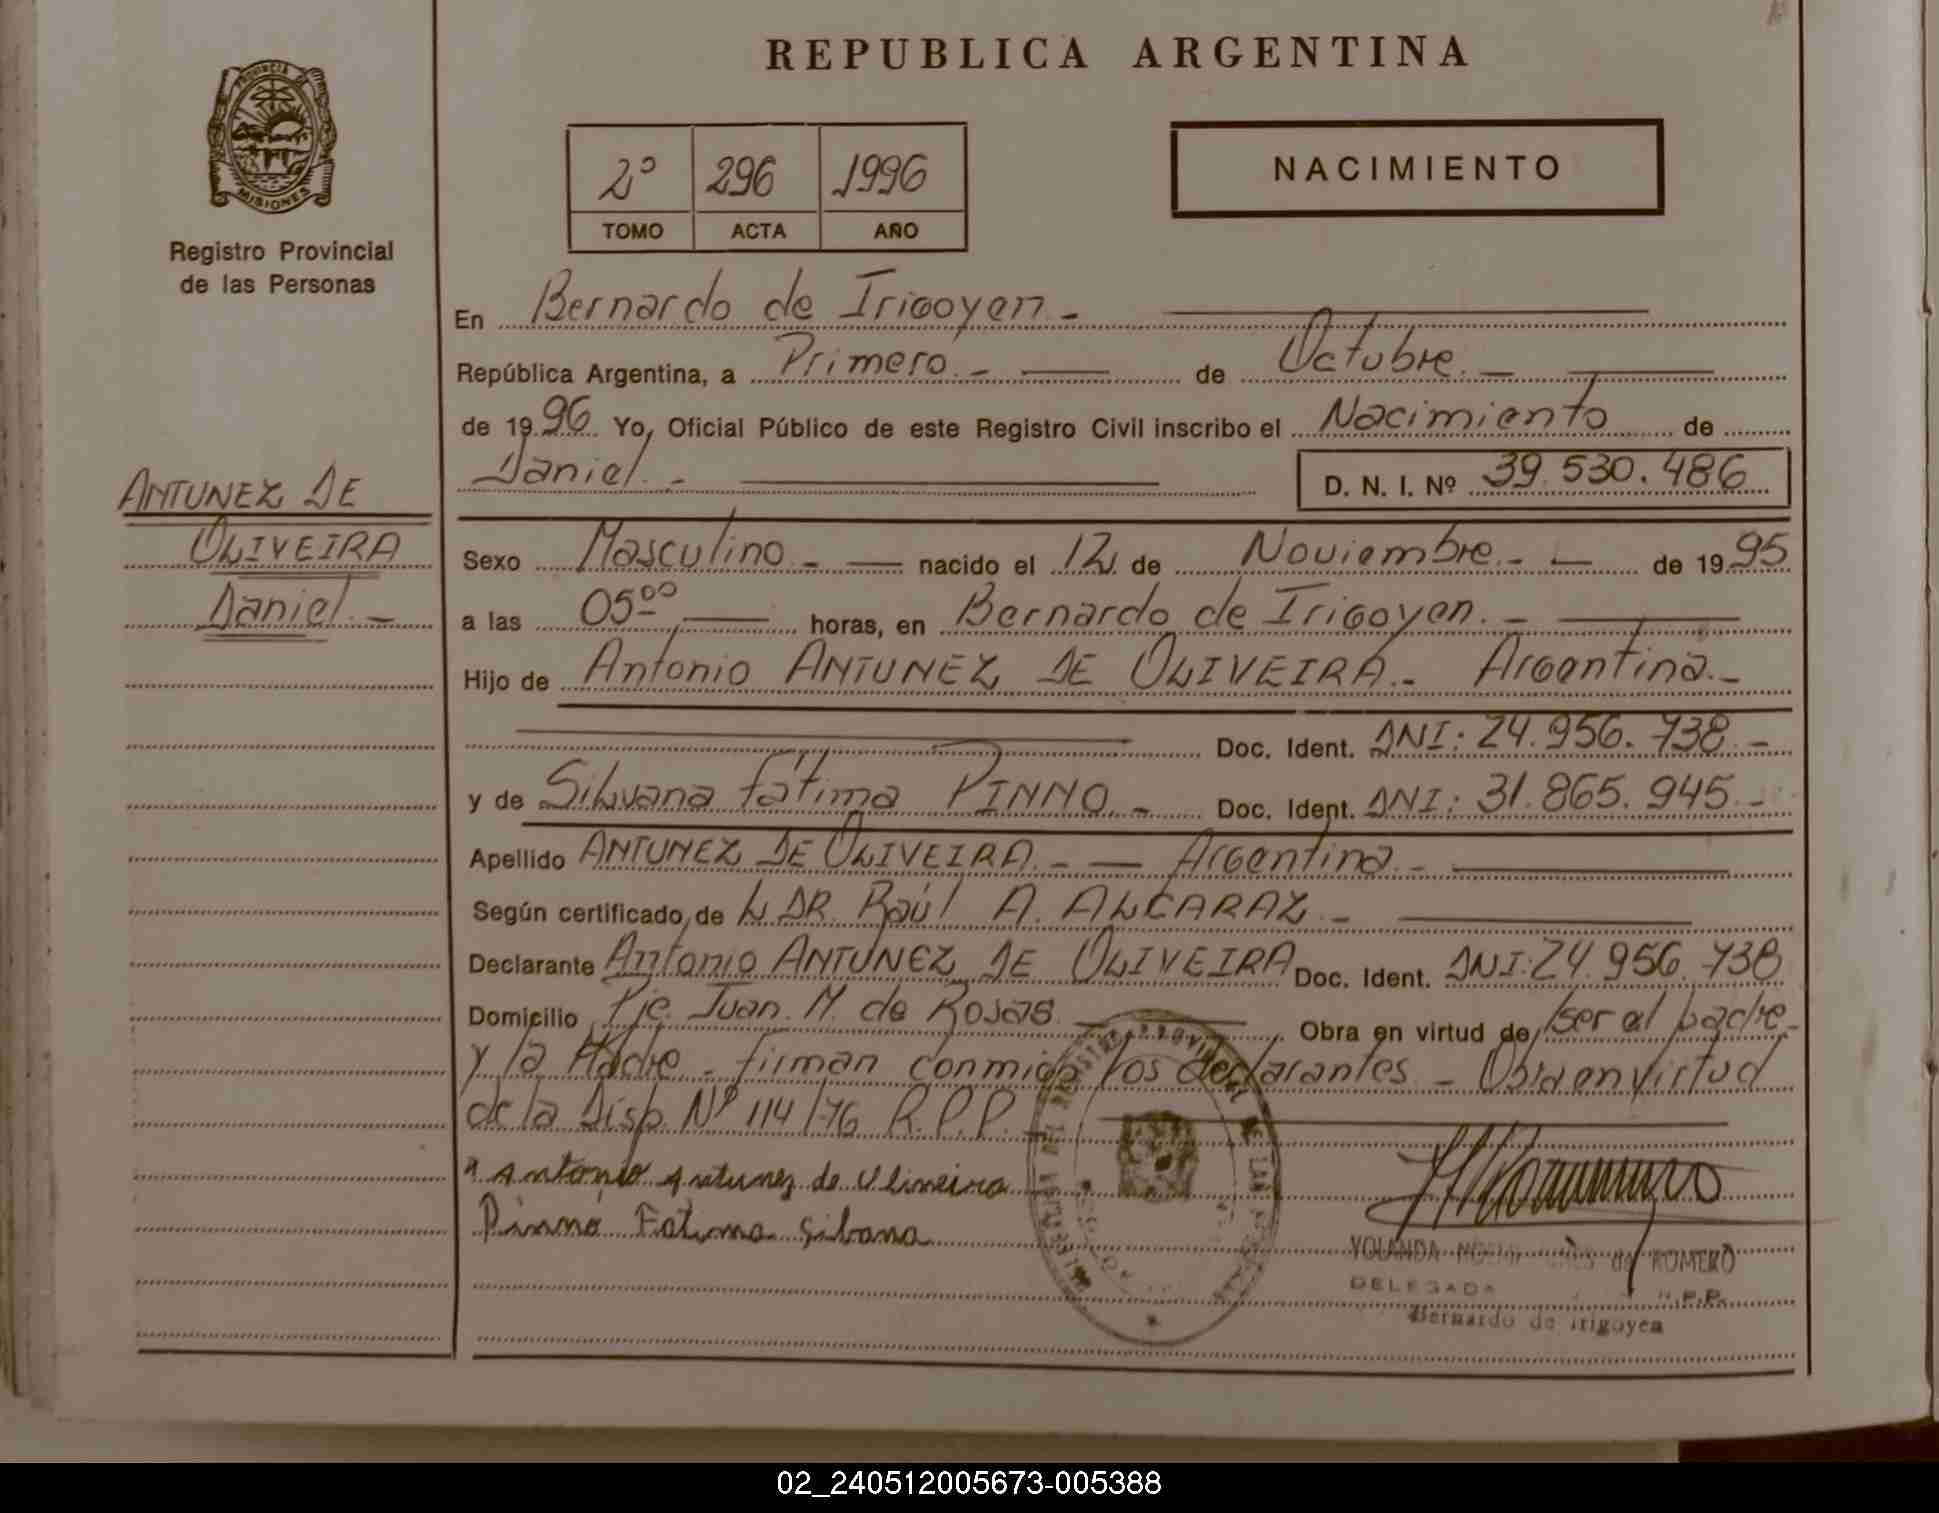 REPUBLICA ARGENTINA
PROVINCIA DE
MISIONES
Registro Provincial
de las Personas
2º 296 1996
TOMO ACTA AÑO
NACIMIENTO
En Bernardo de Irigoyen.-
República Argentina, a Primero.- de Octubre.-
de 1996. Yo, Oficial Público de este Registro Civil inscribo el Nacimiento de
Daniel.- D. N. I. Nº 39.530.486
ANTUNEZ DE
OLIVEIRA
Daniel.-
Sexo Masculino.- nacido el 12 de Noviembre.- de 1995
a las 05⁰⁰ horas, en Bernardo de Irigoyen.-
Hijo de Antonio ANTUNEZ DE OLIVEIRA.- Argentina.-
Doc. Ident. DNI: 24.956.738.-
y de Silvana Fátima PINNO.- Doc. Ident. DNI: 31.865.945.-
Apellido ANTUNEZ DE OLIVEIRA.- Argentina.-
Según certificado de DR. Raúl A. ALCARAZ.-
Declarante Antonio ANTUNEZ DE OLIVEIRA Doc. Ident. DNI: 24.956.738
Domicilio Pje. Juan. M. de Rosas. Obra en virtud de ser el padre-
y la Madre - firman conmigo los declarantes - Obra en virtud
de la Disp. Nº 114/76 R.P.P.
Antonio Antunez de Oliveira
Pinno Fatima Silbana
YOLANDA de ROMERO
DELEGADA
R.P.P.
Bernardo de Irigoyen
02_240512005673-005388